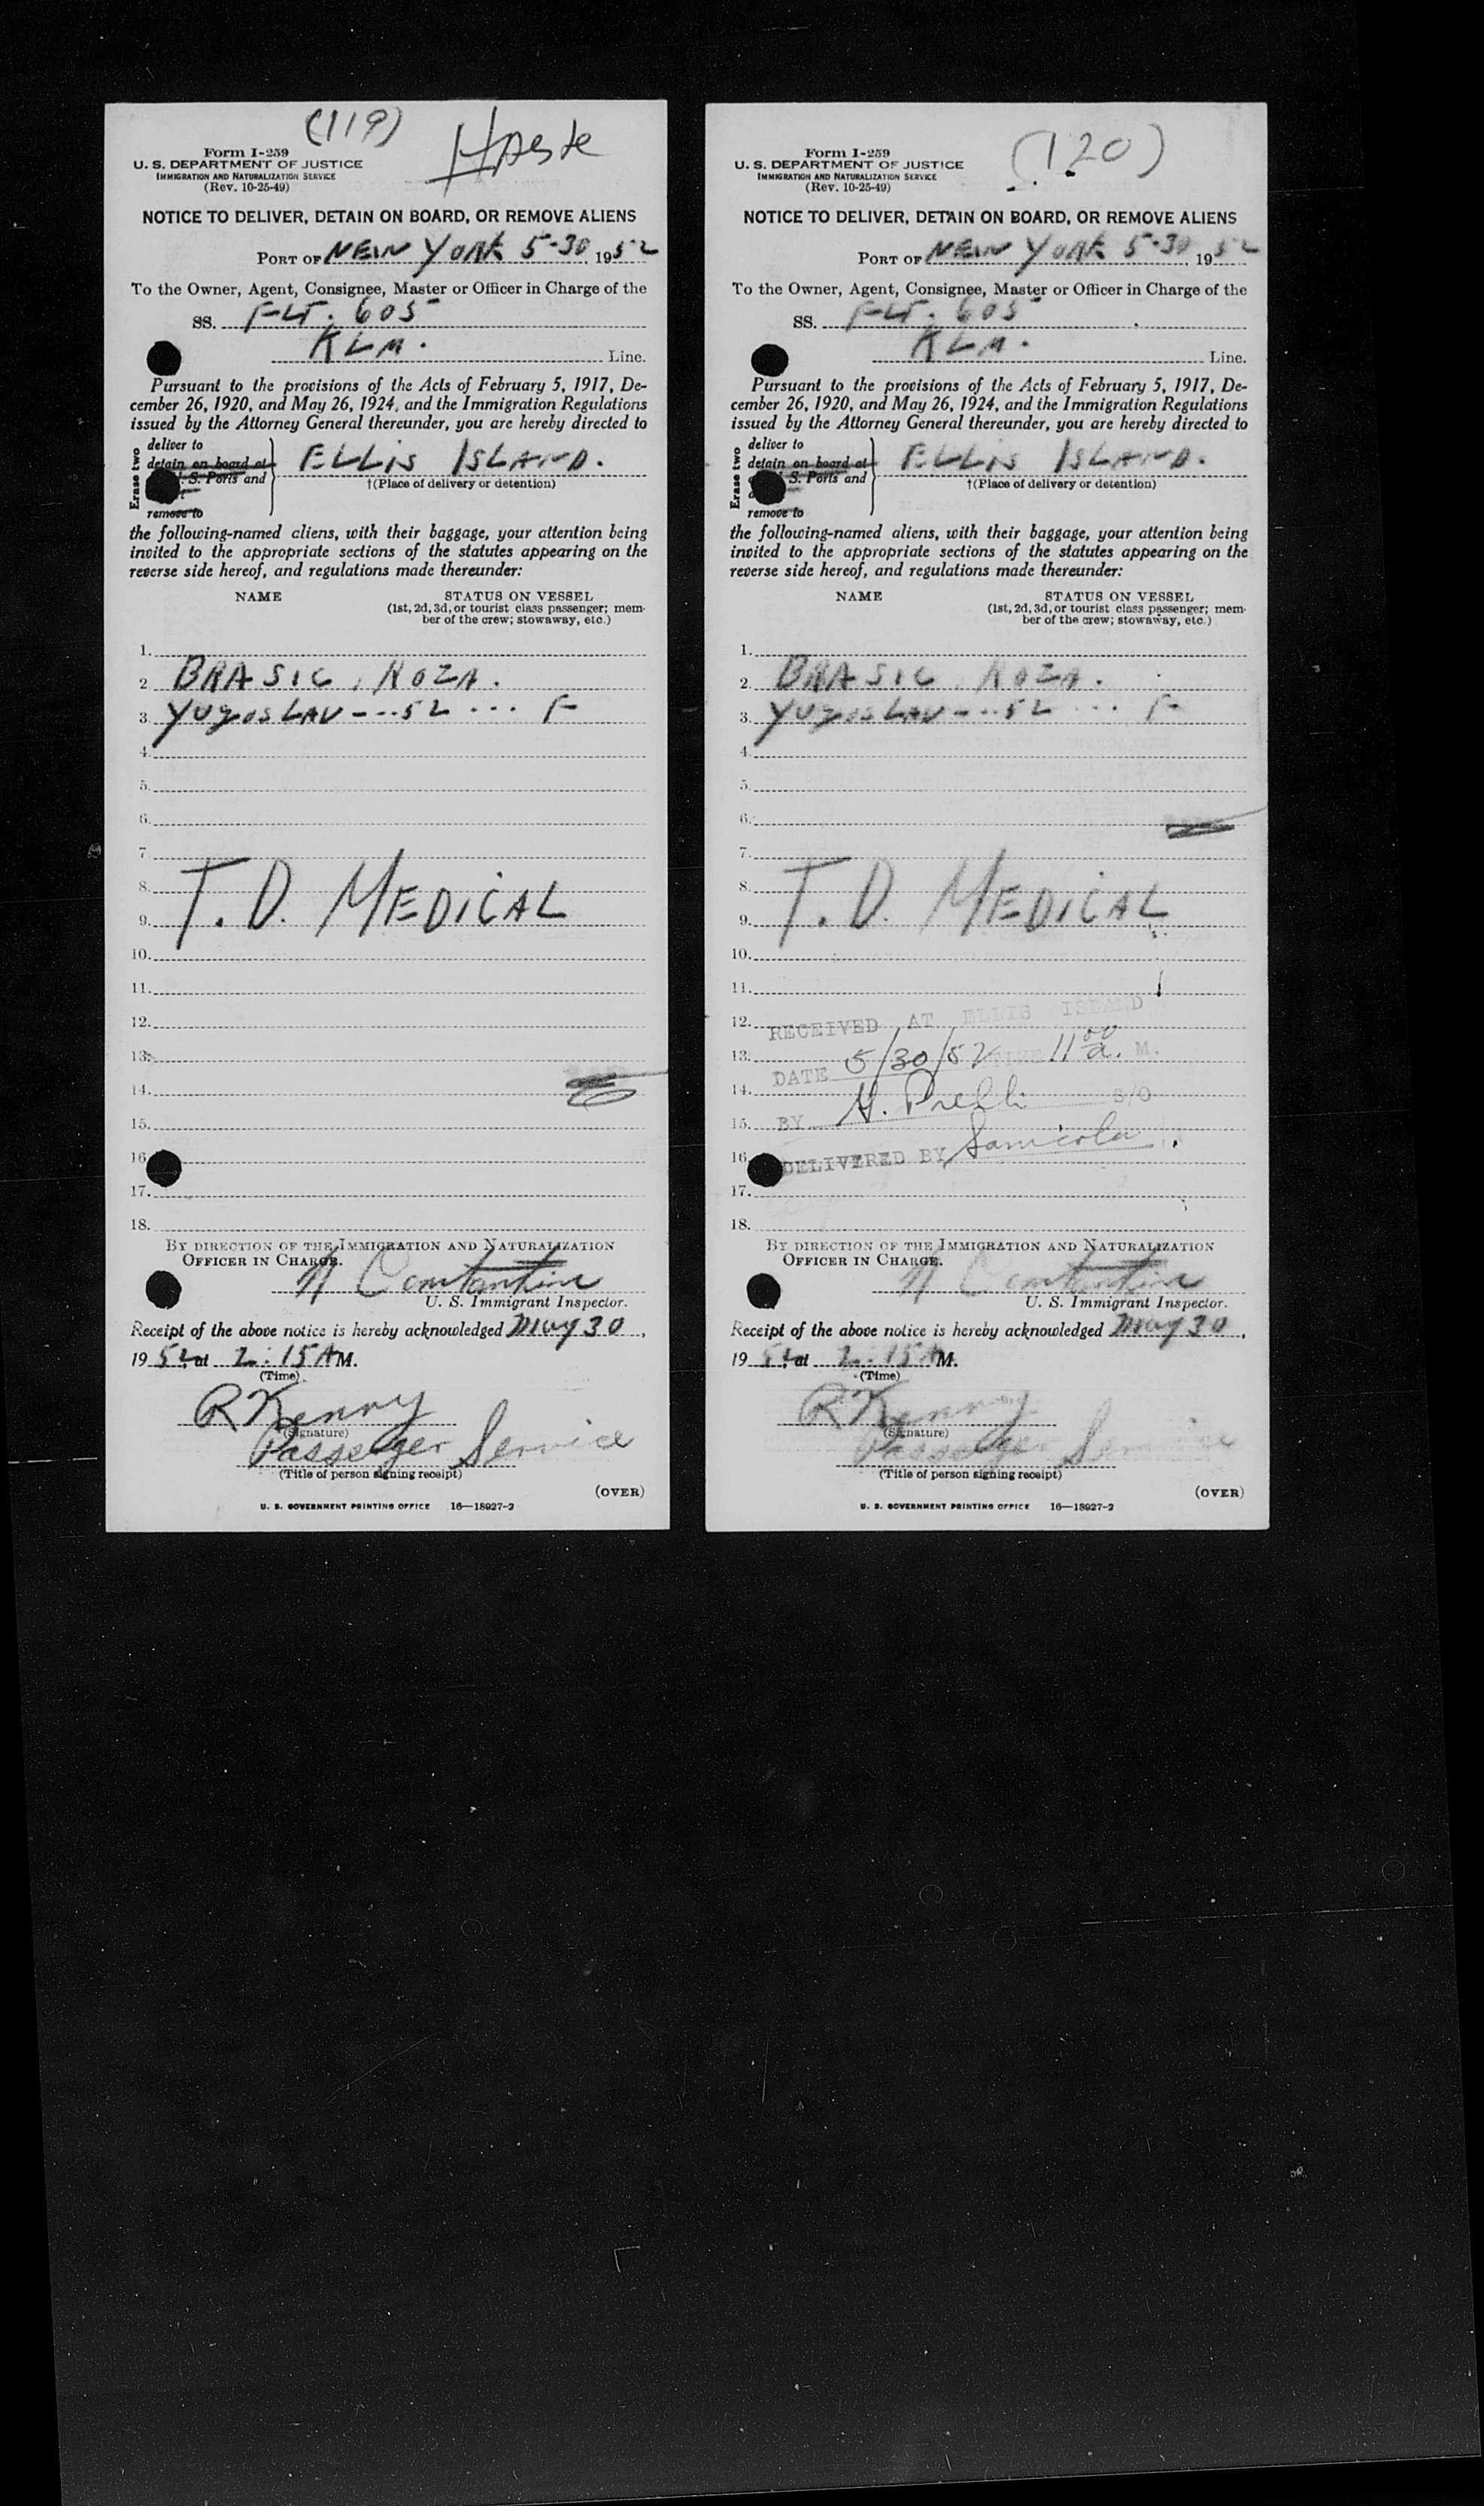 (119)
Form I-259
U. S. DEPARTMENT OF JUSTICE
IMMIGRATION AND NATURALIZATION SERVICE
(Rev. 10-25-49)
NOTICE TO DELIVER, DETAIN ON BOARD, OR REMOVE ALIENS
PORT OF NEW YORK 5-30, 1952
To the Owner, Agent, Consignee, Master or Officer in Charge of the
SS. FLT. 605
KLM. Line.
Pursuant to the provisions of the Acts of February 5, 1917, De-
cember 26, 1920, and May 26, 1924, and the Immigration Regulations
issued by the Attorney General thereunder, you are hereby directed to
Erase two
deliver to
detain on board at
S. Ports and
remove to
ELLIS ISLAND.
†(Place of delivery or detention)
the following-named aliens, with their baggage, your attention being
invited to the appropriate sections of the statutes appearing on the
reverse side hereof, and regulations made thereunder:
NAME STATUS ON VESSEL
(1st, 2d, 3d, or tourist class passenger; mem-
ber of the crew; stowaway, etc.)
1.
2. BRASIC, ROZA.
3. YUGOSLAV --- 52 ... F
4.
5.
6.
7.
8.
T. D. MEDICAL
9.
10.
11.
12.
13.
14.
15.
16
17.
18.
BY DIRECTION OF THE IMMIGRATION AND NATURALIZATION
OFFICER IN CHARGE.
U. S. Immigrant Inspector.
Receipt of the above notice is hereby acknowledged May 30,
1952, at 2:15 AM.
(Time)
R Kenny
(Signature)
Passenger Service
(Title of person signing receipt)
(OVER)
U. S. GOVERNMENT PRINTING OFFICE 16—18927-2
(120)
Form I-259
U. S. DEPARTMENT OF JUSTICE
IMMIGRATION AND NATURALIZATION SERVICE
(Rev. 10-25-49)
NOTICE TO DELIVER, DETAIN ON BOARD, OR REMOVE ALIENS
PORT OF NEW YORK 5-30, 1952
To the Owner, Agent, Consignee, Master or Officer in Charge of the
SS. FLT. 605
KLM. Line.
Pursuant to the provisions of the Acts of February 5, 1917, De-
cember 26, 1920, and May 26, 1924, and the Immigration Regulations
issued by the Attorney General thereunder, you are hereby directed to
Erase two
deliver to
detain on board at
S. Ports and
remove to
ELLIS ISLAND.
†(Place of delivery or detention)
the following-named aliens, with their baggage, your attention being
invited to the appropriate sections of the statutes appearing on the
reverse side hereof, and regulations made thereunder:
NAME STATUS ON VESSEL
(1st, 2d, 3d, or tourist class passenger; mem-
ber of the crew; stowaway, etc.)
1.
2. BRASIC, ROZA.
3. YUGOSLAV --- 52 ... F
4.
5.
6.
7.
8.
T. D. MEDICAL
9.
10.
11.
12.
RECEIVED AT ELLIS ISLAND
13.
DATE 5/30/52 TIME 11 00 a. M.
14.
BY S/O
15.
16
DELIVERED BY Sanicola.
17.
18.
BY DIRECTION OF THE IMMIGRATION AND NATURALIZATION
OFFICER IN CHARGE.
U. S. Immigrant Inspector.
Receipt of the above notice is hereby acknowledged May 30,
1952, at 2:15 AM.
(Time)
R Kenny
(Signature)
Passenger Service
(Title of person signing receipt)
(OVER)
U. S. GOVERNMENT PRINTING OFFICE 16—18927-2